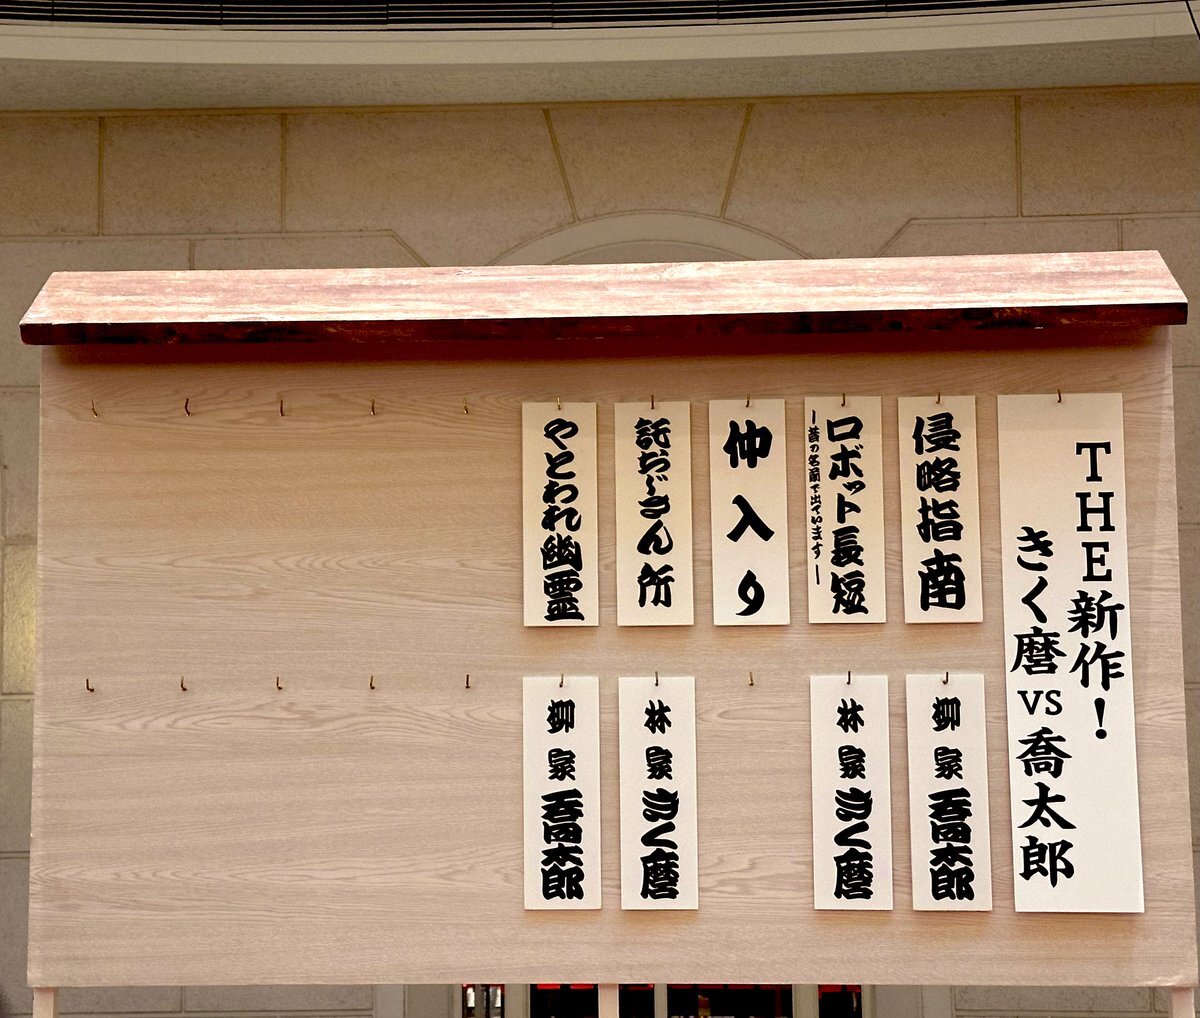 THE新作！
きく麿VS喬太郎
侵略指南
柳家喬太郎
ロボット長短
ー昔の名前で出ていますー
林家きく麿
仲入り
託おじさん所
林家きく麿
やとわれ幽霊
柳家喬太郎